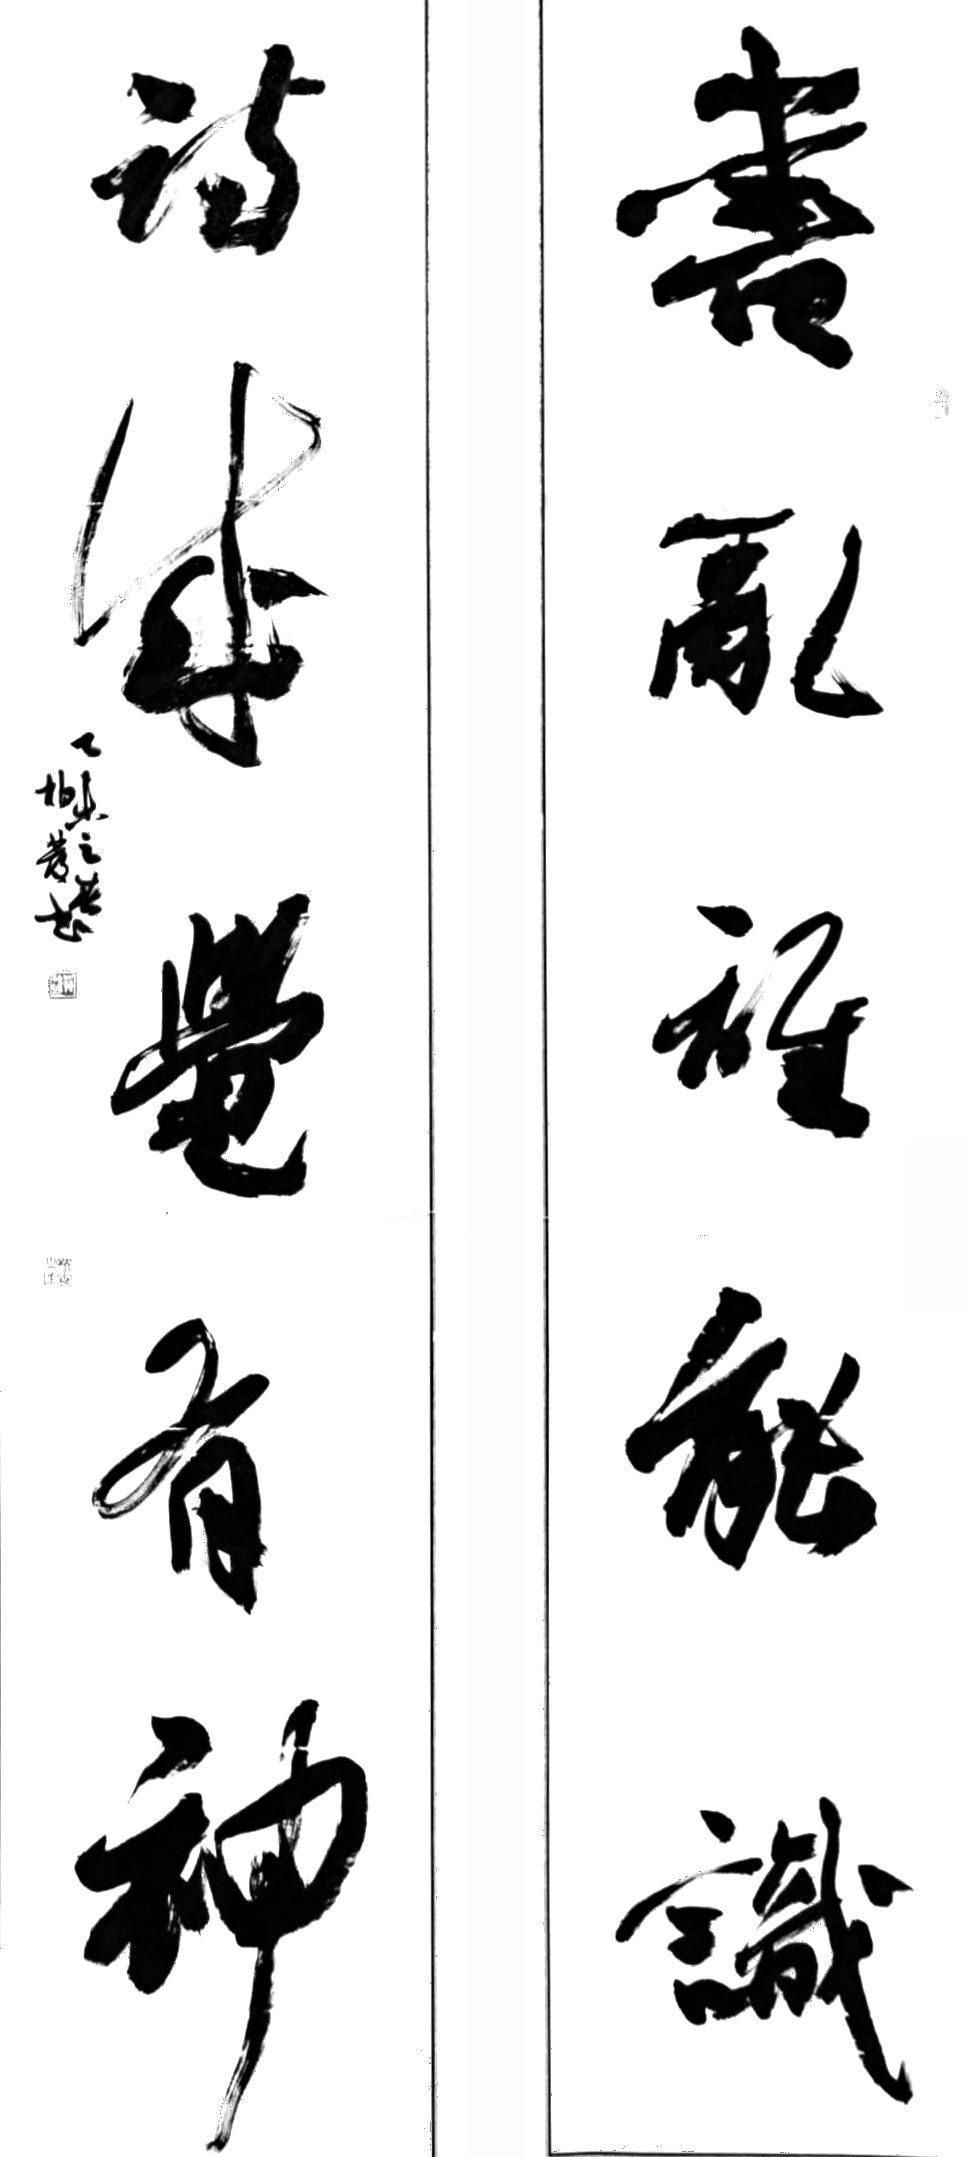 書亂誰能識
詩成覺有神
乙未之春
柏發書